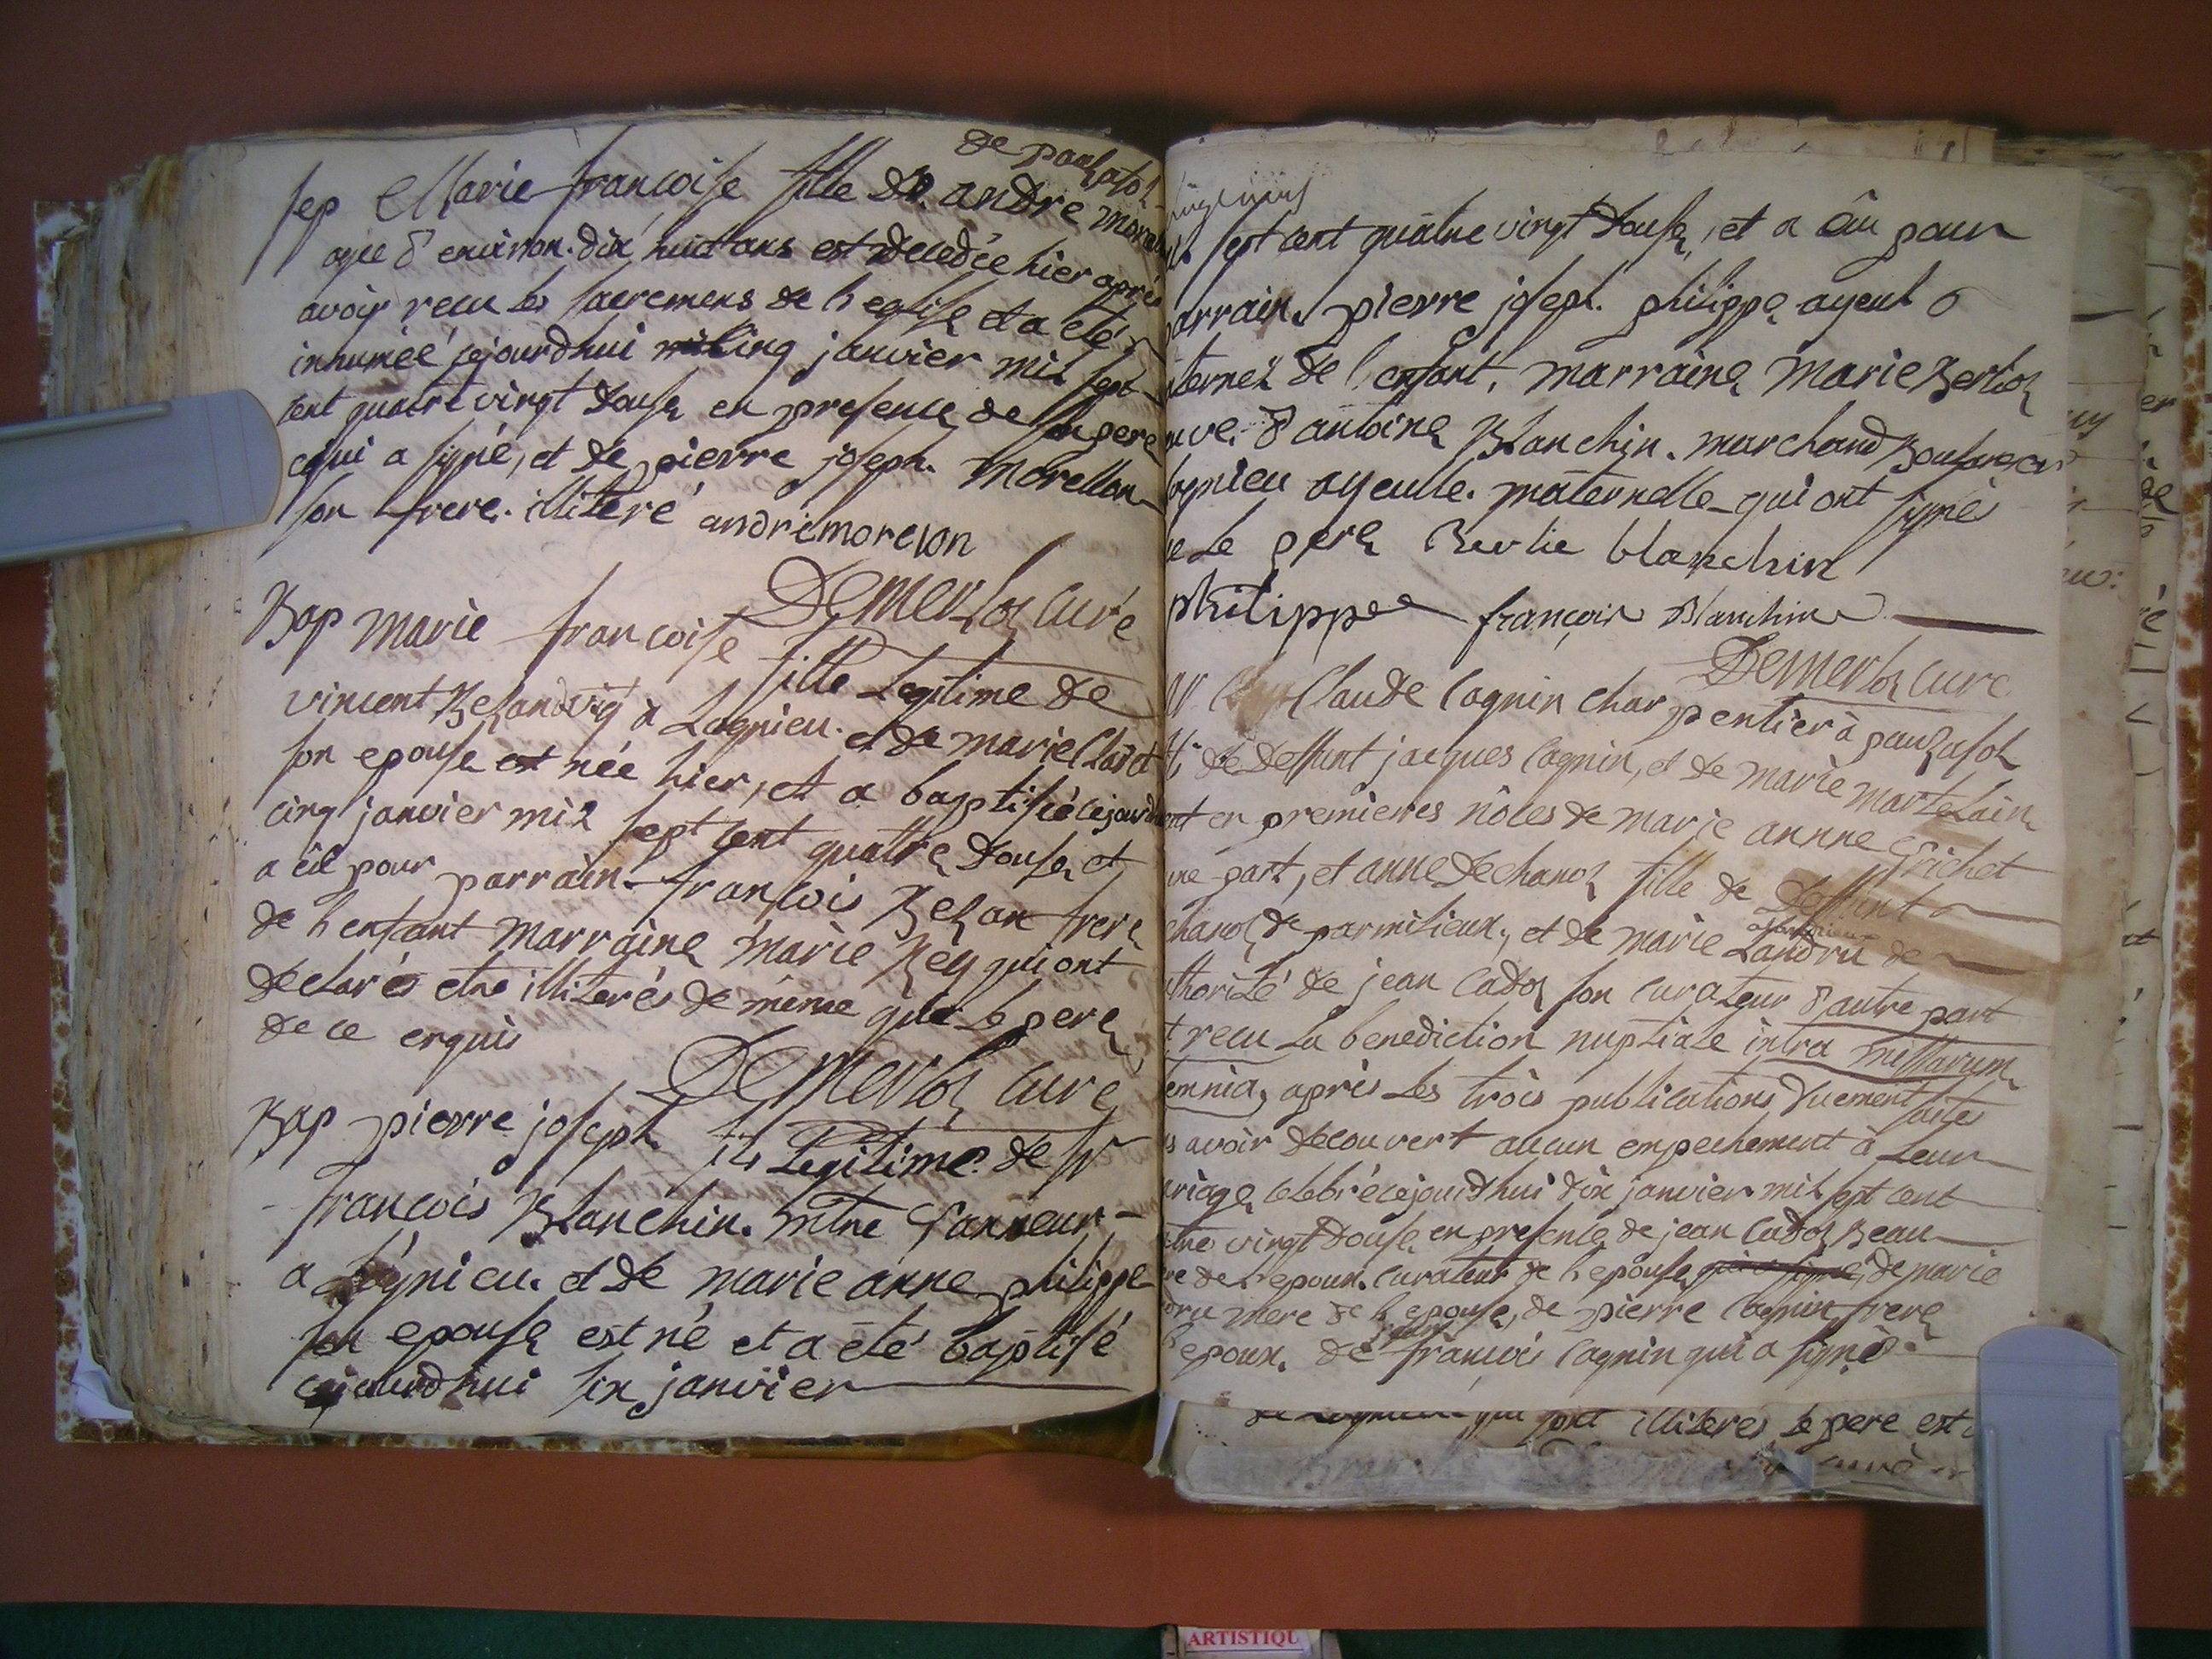 de paul asol
sep Marie françoise fille de andre more
agée d'environ dix huit ans est decedée hier après
avoir recu les sacremens de l'eglise et a eté
inhumée cejourdhui cinq janvier mil sept
cent quatre vingt douse en presence de son pere
qui a signé, et de pierre joseph Morellon
son frere illiteré andrimorelon
Demerloz curé
Bap marie françoise fille Legitime de
vincent Bezan vig a Lagnieu et de marie Cladet
son epouse est née hier, et a baptisée cejourdh
cinq janvier mil sept cent quatre douse, et
a eû pour parrain françois Bezan frere
de l'enfant marraine marie Rey qui ont
declarés etre illiterés de même que le pere
de ce erquis
Demerloz curé
Bap pierre joseph fils Legitime de Sr
françois Blanchin mtre Tanneur
a Lagnieu et de marie anne philippe
son epouse est né et a eté baptisé
cejourdhui six janvier
sept cent quatre vingt douse, et a eû pour
arrain pierre joseph philippe ayeul
aternel de l'enfant, marraine marie Berlioz
uve d'antoine Blanchin marchand
agnieu ayeule maternelle qui ont signés
ue le pere Berlie blanchin
philippe françois Blanchin
Demerloz curé
Claude Cagnin charpentier à paul asol
de deffunt jacques Cagnin, et de marie martelain
en premieres nôces de marie annne Grichet
une part, et anne dechanoz fille de deffunt
chanoz de parmilieux, et de marie Landru de
thorité de jean Cadoz son curateur d'autre part
t recu La benediction nuptiale intra missarum
emnia, après Les trois publications duement faites
s avoir decouvert aucun empechement à Leur
riage celebré cejourdhui dix janvier mil sept cent
tre vingt douse en presence de jean Cadoz Beau
re de l'epoux curateur de l'epouse qui a signé, de marie
dru mere de l'epouse, de pierre Cagnin frere
l'epoux, de françois Cagnin qui a signé
qui sont illiteres le pere est